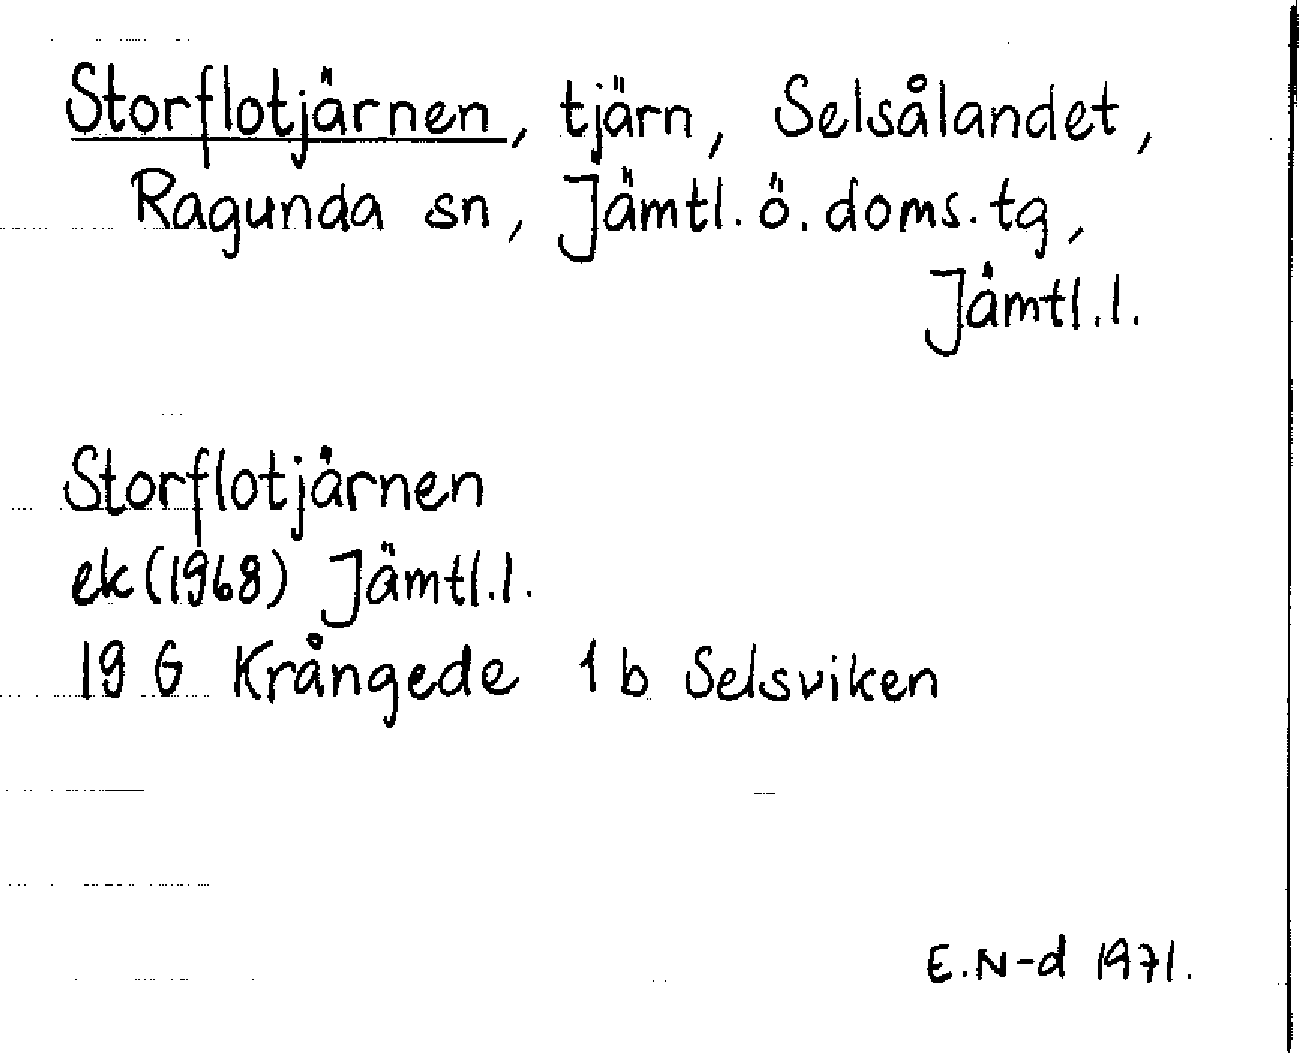 Storflotjärnen, tjärn, Selsålandet,
Ragunda sn, Jämtl. ö. doms. tg,
Jämtl. l.
Storflotjärnen
ek (1968) Jämtl. l.
19 G Krångede 1 b Selsviken
E. N-d 1971.